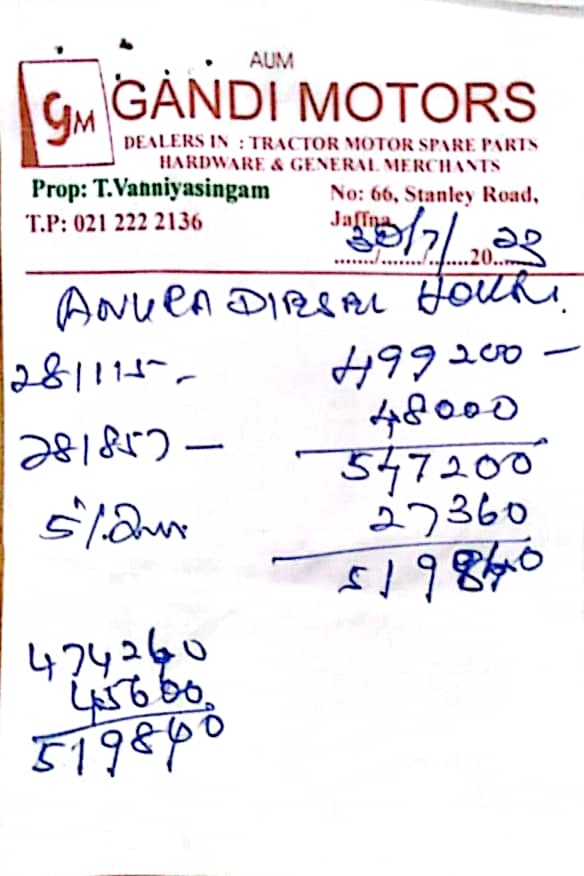 AUM
GM GANDI MOTORS
DEALERS IN : TRACTOR MOTOR SPARE PARTS
HARDWARE & GENERAL MERCHANTS
Prop: T.Vanniyasingam
No: 66, Stanley Road,
T.P: 021 222 2136
Jaffna
30/7/2023
ANURA DIESAL HOUSE.
281115 - 499200 -
48000
281857 - 547200
5% 27360
519840
474260
45600
519840